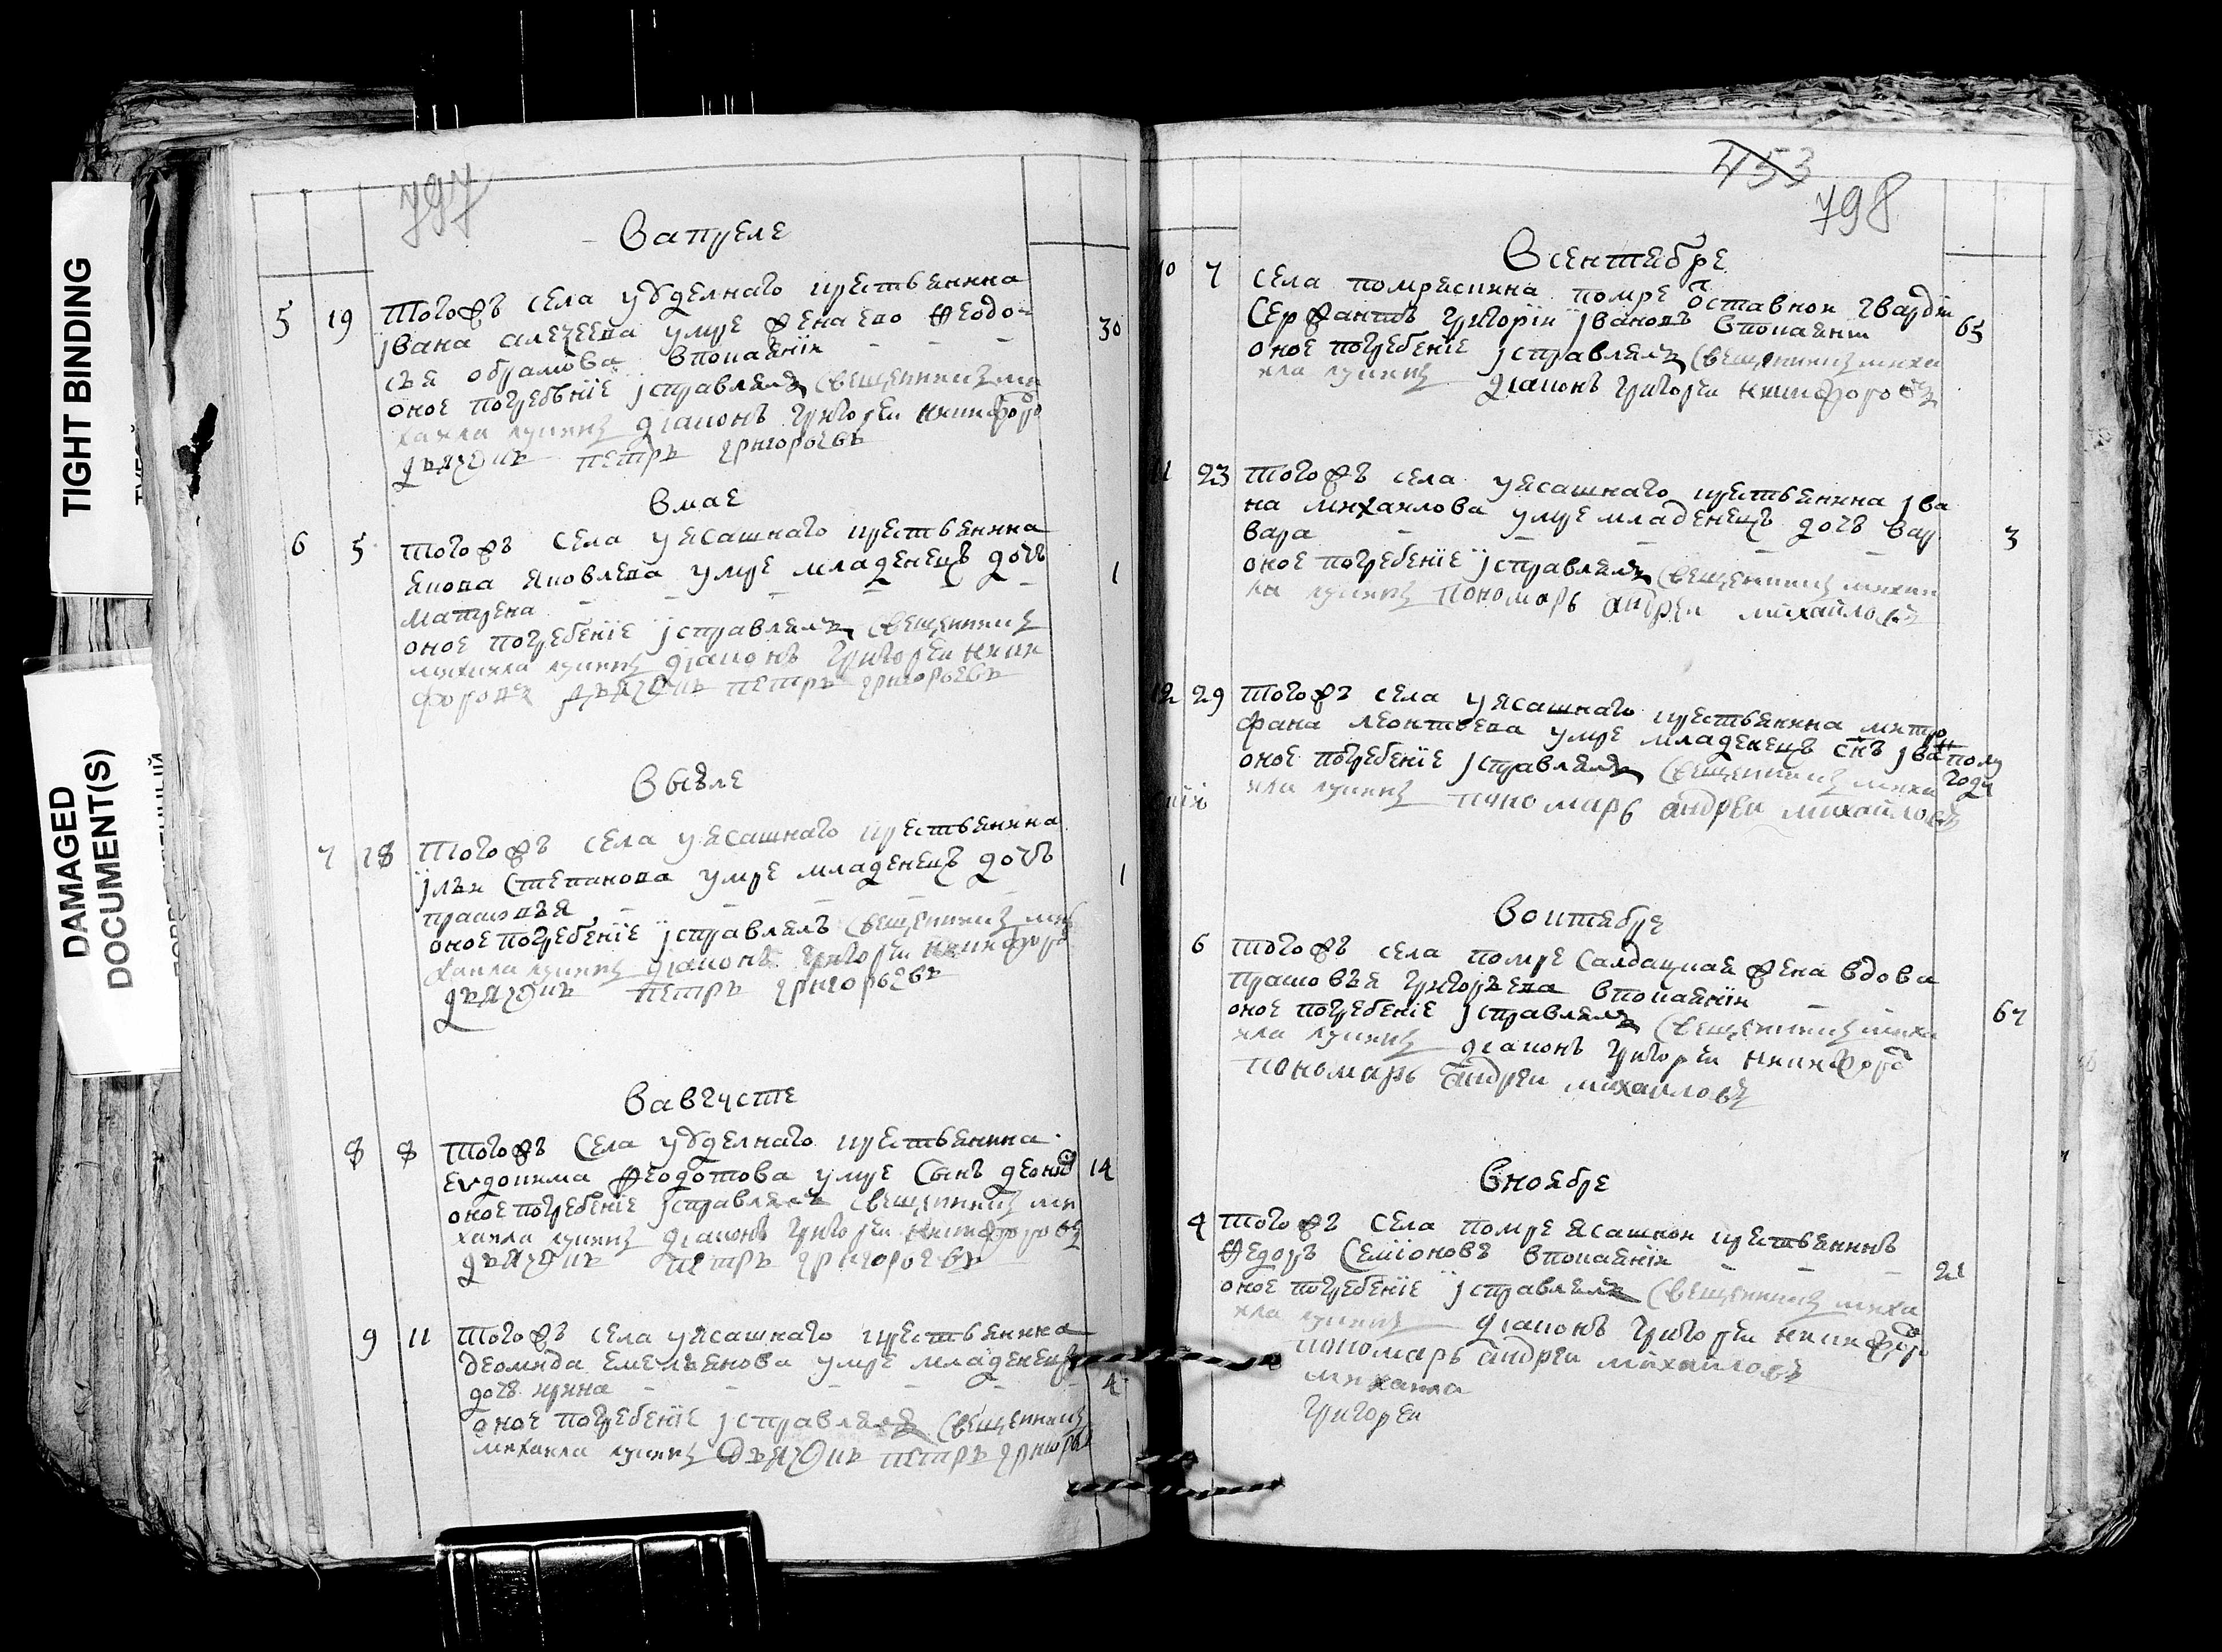 TIGHT BINDING
DAMAGED
DOCUMENT(S)
797
Вапреле
5 19 тогожъ села удѣлнаго крестьянина
Ївана алеѯеева умре жена ево Ѳеодо-
сья абрамова впокаянїи 30
оное погребенїе їсправлялъ священникъ ми
хаила лукинъ дїаконъ григореи никифоро
дьячокъ петръ григорьевъ
Вмае
6 5 тогожъ села уясашнаго крестьянина
якова яковлева умре младенецъ дочь 1
матрена
оное погребенїе їсправлялъ священникъ
михаила лукинъ дїаконъ григореи ники
форовъ дьячокъ петръ григорьевъ
Виюле
7 18 тогожъ села уясашнаго крестьянина
Їльи степанова умре младенецъ дочь 1
прасковья
оное погребенїе їсправлялъ священникъ ми
хаила лукинъ дїаконъ григореи никифоро
дьячокъ петръ григорьевъ
Вавгусте
8 8 тогожъ села удѣлнаго крестьянина
Евдокима Ѳеодотова умре сынъ 14
оное погребенїе їсправлялъ священникъ ми
хаила лукинъ дїаконъ григореи никифоровъ
дьячокъ петръ григорьевъ
9 11 тогожъ села уясашнаго крестьянина
деомида емельянова умре младенецъ
дочь ирина 4
оное погребенїе їсправлялъ священникъ
михаила лукинъ дьячокъ петръ григорье
453
798
Всентябре
10 7 села помряскина помре отставнои гвардїи
сержантъ григорїи ївановъ впокаянїи 65
оное погребенїе їсправлялъ священникъ миха
ила лукинъ дїаконъ григореи никифоровъ
11 23 тогожъ села уясашнаго крестьянина їва
на михаилова умре младенецъ дочь вар
вара 3
оное погребенїе їсправлялъ священникъ михаи
ла лукинъ пономарь андреи михаиловъ
12 29 тогожъ села уясашнаго крестьянина митро
фана леонтьева умре младенецъ снъ їванъ полу
оное погребенїе їсправлялъ священникъ миха году
ила лукинъ пономарь андреи михаиловъ
Воктябре
6 тогожъ села помре салдацкая жена вдова
прасковья григорьева впокаянїи
оное погребенїе їсправлялъ священникъ миха 67
ила лукинъ дїаконъ григореи никифоро
пономарь андреи михаиловъ
Вноябре
4 тогожъ села помре ясашнои крестьянинъ
Ѳедоръ семїоновъ впокаянїи 21
оное погребенїе їсправлялъ священникъ миха
ила лукинъ дїаконъ григореи никифоро
пономарь андреи михаиловъ
михаила
григореи